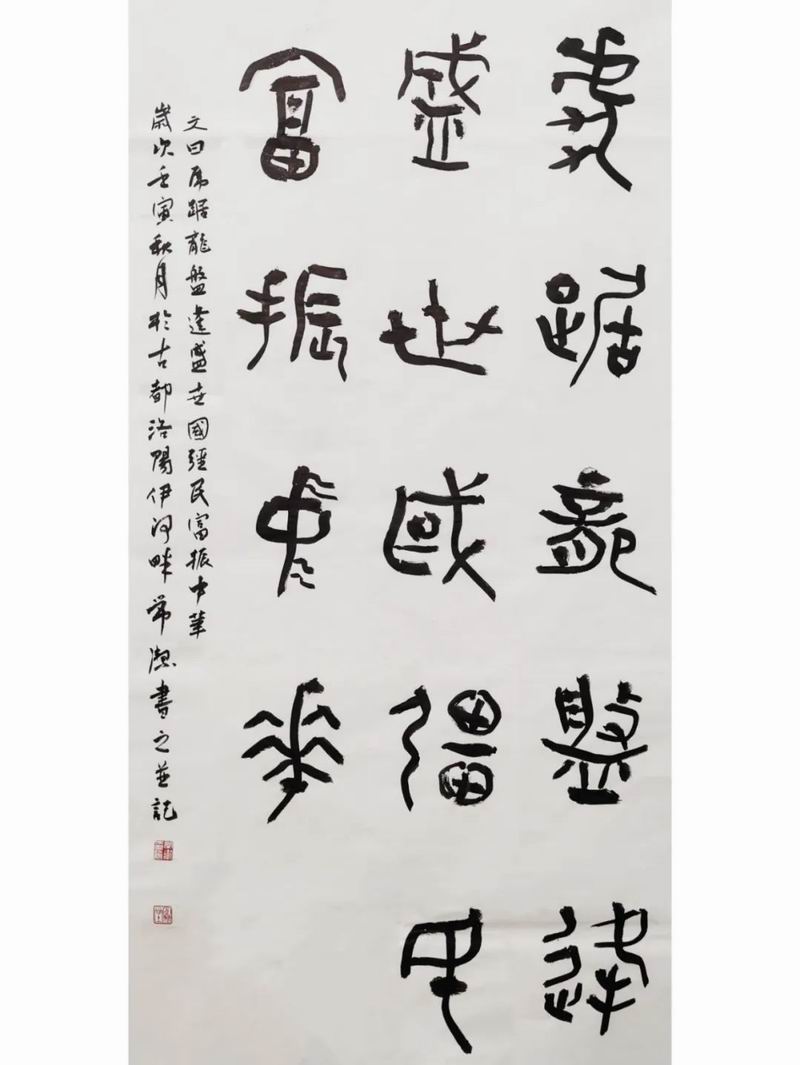 虎踞龍盤達
盛世國彊民
富振中華
文曰虎踞龍盤達盛世國彊民富振中華
歲次壬寅秋月於古都洛陽伊河畔常書之並記